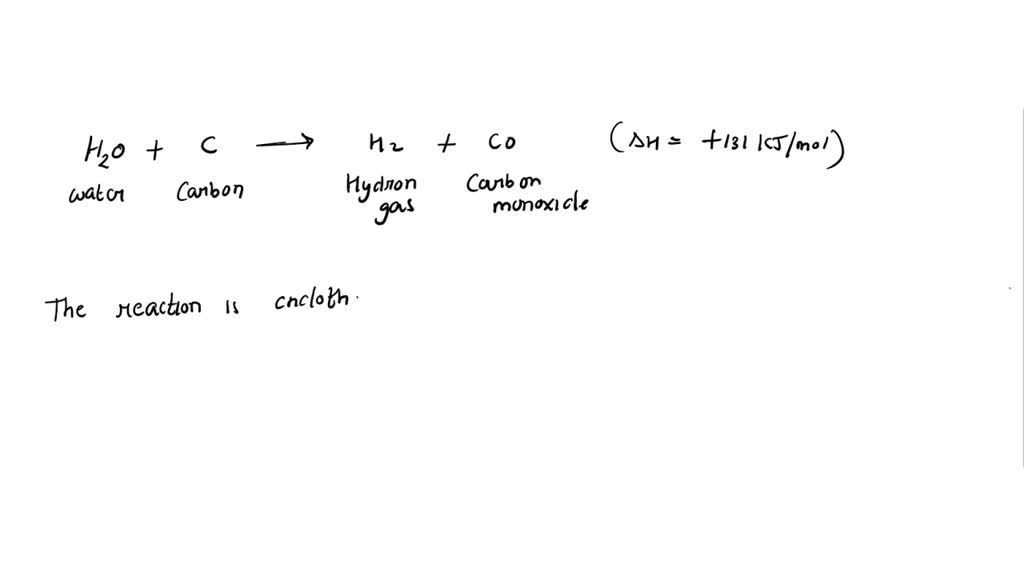 H₂O + C ⟶ H₂ + CO (ΔH = +131 KJ/mol)
water Carbon Hydron gas Carbon monoxide
The reaction is encloth.